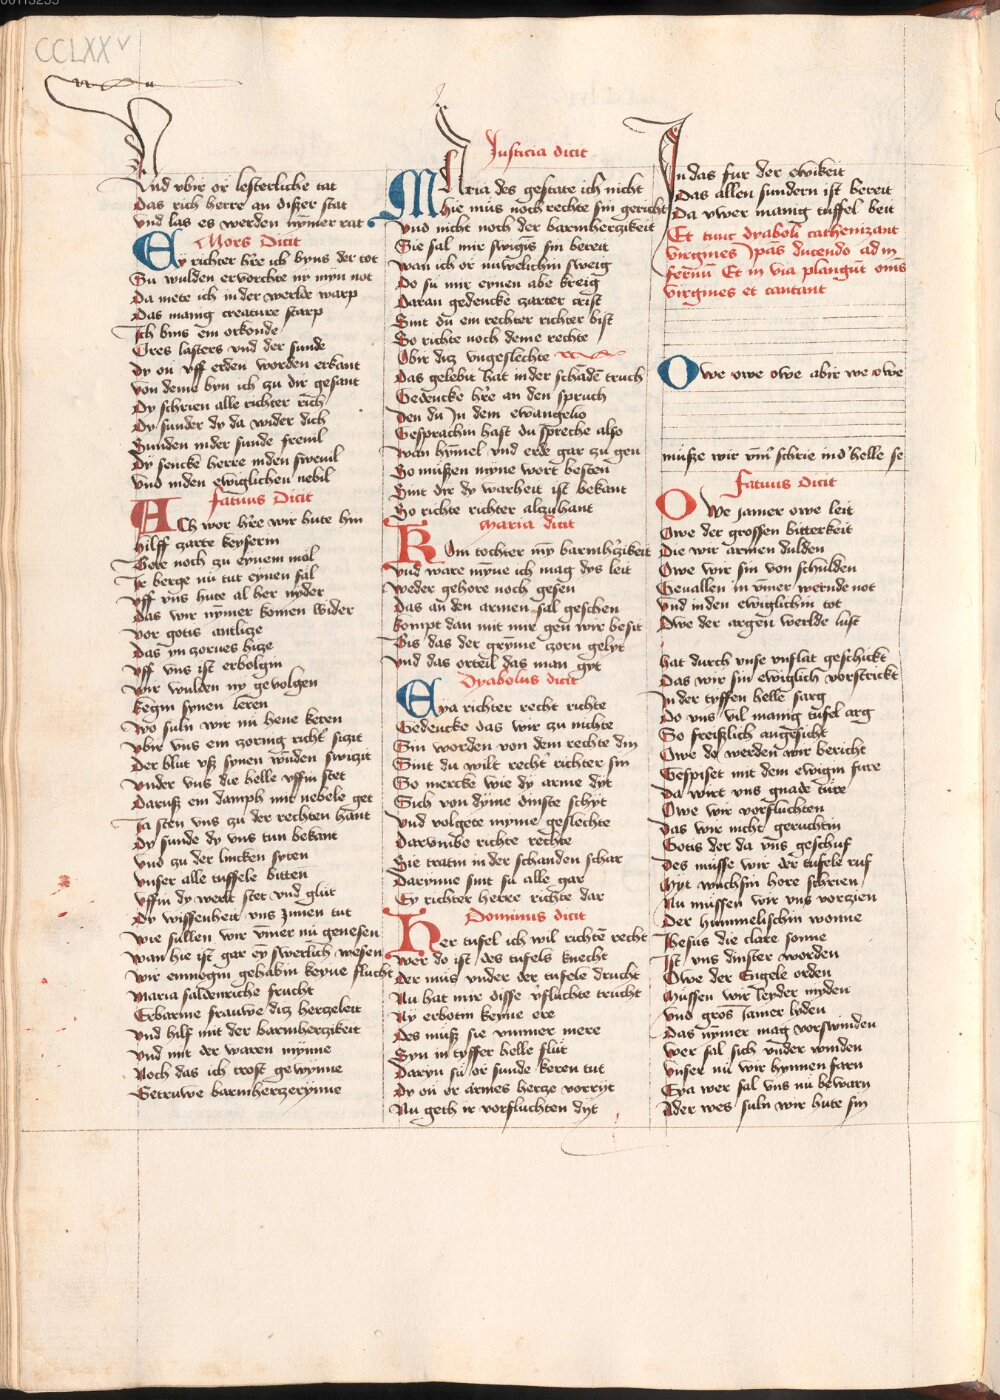 CCLXX v
Und vbir or lesterliche tat
Das rich herre an disser stat
Und las es werden nymer rat
Mors Dicit
Ey richter hre ich byns der tot
Su wulden ervorchte ny myn not
Da mete ich in der werlde warp
Das manig creature starp
Ich bins ein orkonde
Ores lasters vnd der sunde
Dy on vff erden worden erkant
Von deme byn ich zu dir gesant
Dy schrien alle richter rich
Dy sunder dy da wider dich
Sunden in der sunde frevil
Dy sencke herre in den swevil
Und in den ewiglichen nebil
fatuus Dicit
ACh wor hre wir hute hin
Hilff zarte keyserin
Bete noch zu eynem mol
Ie berge nu tut eynen fal
Uff vns hute al her nyder
Das wir nymer komen wider
Vor gotis antlitze
Das in zornes hitze
Uff vns ist erbolgin
Wir wulden ny gevolgen
Kegin synen leren
Wo suln wir nu hene keren
Ubir vns ein zornig richter siczit
Der blut vß synen wunden swiczit
Under vns die helle vffin stet
Daruß ein damph mit nebele get
Ja sten vns zu der rechten hant
Dy sunde dy vns tun bekant
Und zu der lincken syten
Unser alle tuffele bitten
Uffin dy werlt stet vnd glut
Dy wissenheit vns innen tut
Wie sullen wir vmer nu genesen
Wan hie ist gar ey swerlich wesen
Wir enmogin gehabin keyne flucht
Maria saldenriche frucht
Erbarme frauwe diz herzeleit
Und hilf mit der barmherczikeit
Und mit der waren mynne
Noch das ich trost gewynne
Getruwe barmherzerynne
Justicia dicit
MAria des gestate ich nicht
Hie mus noch rechte sin gericht
Und nicht noch der barmherczikeit
Sie sal mir swigens sin bereit
Wan ich or nuwelichin sweig
Do su mir eynen abe kreig
Daran gedencke czarter crist
Sint du ein rechter richter bist
So richte noch deme rechte
Obir diz vngeslechte
Das gelebit hat in der schaden truch
Gedencke hre an den spruch
Den du In dem ewangelio
Gesprachin hast du spreche also
Wan hymel vnd erde gar zu gen
So mußen myne wort besten
Sint dir dy warheit ist bekant
So richte richter alzuhant
Maria dicit
Kom tochter my barmhrzikeit
Und ware mynne ich mag dys leit
Weder gehore noch gesen
Das an den armen sal geschen
Kompt dan mit mir gen wir besit
Bis das der grymme zorn gelyt
Und das orteil das man gyt
Dyabolus dicit
Eya richter recht richte
Gedencke das wir zu nichte
Sin worden von dem rechte din
Sint du wilt recht richter sin
So mercke wie dy arme dyt
Sich von dyme dinste schyt
Und volgete myme geslechte
Darumbe richte rechte
Sie tratin in der schanden schar
Darynne sint su alle gar
Ey richter herre richte dar
Dominus dicit
Her tufel ich wil richte recht
Wer do ist des tufels knecht
Der mus under der tufele drucht
Nu hat mir disse vfluchte trucht
Ny erbotin keyne ere
Des muß sie vmmer mere
Syn in tyffer helle flut
Daryn su or sunde keren tut
Dy on or armes hercze vorryt
Nu geth ir vorfluchten dyt
In das fur der ewikeit
Das allen sundern ist bereit
Da vwer manig tuffel beit
Et tunc dyaboli cathenizant
virgines ipas ducendo ad in
fernum Et in via plangunt omes
virgines et cantant
Owe owe owe abir we owe
muße wir vmer schrie in der helle se
fatuus dicit
OWe jamer owe leit
Owe der grossen bitterkeit
Die wir armen dulden
Owe wir sin von schulden
Gevallen in vmer wernde not
Und in den ewiglichin tot
Owe der argen werlde lust
hat durch vnse vnflat geschickt
Das wir sin ewiglich vorstrickt
In der tyffen helle sarg
Do vns vil manig tufel arg
So freißlich angesicht
Owe do werden wir bericht
Gespiset mit dem ewigin fure
Da wirt vns gnade ture
Owe wir vorfluchten
Das wir nicht geruchtin
Gotis der da vns geschuf
Des musse wir der tufele ruf
Hyt wuchsin hore schrien
Nu mussen wir vns vorczien
Der hummelischin wonne
Ihesus die clare sonne
Ist vns dinster worden
Owe der Engele orden
Mussen wir leyder myden
Und gros Jamer lyden
Das nymer mag vorswinden
Wer sal sich vnder winden
Unser nu wir hynnen farn
Eya wer sal vns nu bewarn
Ader wes suln wir hute sin